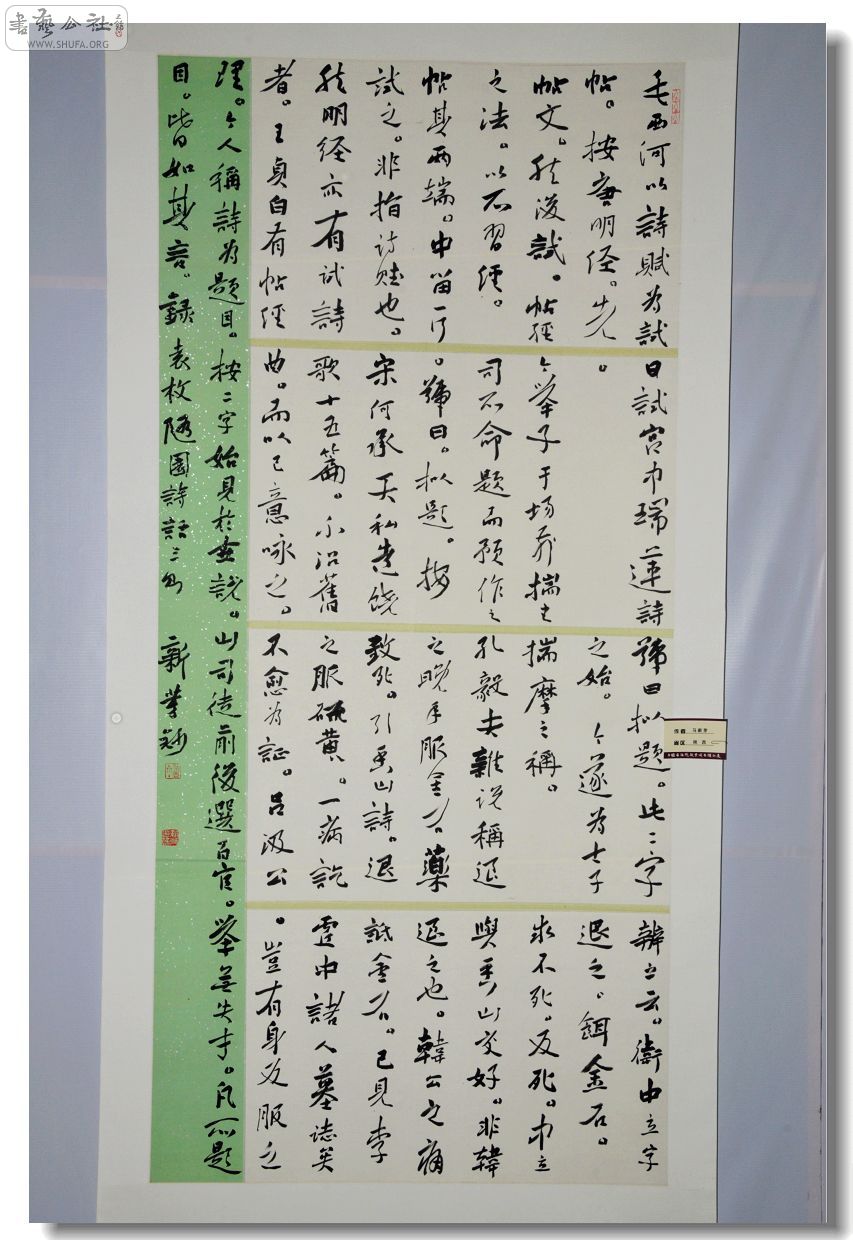 書藝公社
WWW.SHUFA.ORG
毛西河以詩賦為試
帖。按唐明经。先
帖文。然後試。帖經
之法。以所習經。
帖其两端。中留一行。
試之。非指詩賦也。
然明経亦有试詩
者。王貞白有帖經
日試宮中瑞蓮詩
。
今举子于场前揣主
司所命題而预作之
。號曰。拟題。按
宋何承天私造饶
歌十五篇。不沿舊
曲。而以己意咏之。
號曰拟題。此二字
之始。今遂为士子
揣摩之稱。
孔毅夫雜说稱退
之晚年服金石藥
致死。引香山詩。退
之服硫黄。一病訖
不愈为証。吕汲公
辨之云。衞中立字
退之。餌金石。
求不死。反死。中立
與香山交好。非韓
退之也。韓公之痛
詆金石。已見李
虚中諸人墓誌矣
。豈有身反服之
理。今人稱詩为題目。按二字始見於世説。山司徒前後選百官。举無失才。凡所題
目。皆如其言。錄袁枚随園詩話三则 新举钞
作者
地区